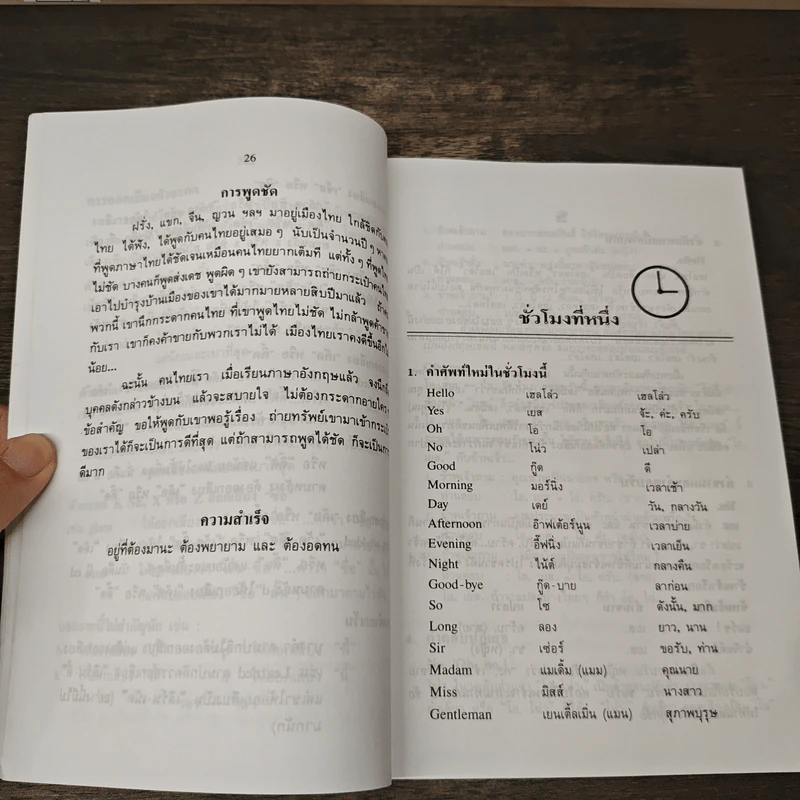 26
การพูดชัด
ฝรั่ง, แขก, จีน, ญวน ฯลฯ มาอยู่เมืองไทย ใกล้ชิดกับคน
ไทย ได้ฟัง, ได้พูดกับคนไทยอยู่เสมอ ๆ นับเป็นจำนวนปี ๆ
ที่พูดภาษาไทยได้ชัดเจนเหมือนคนไทยยากเต็มที แต่ทั้ง ๆ ที่พูด
ไม่ชัด บางคนก็พูดส่งเดช พูดผิด ๆ เขายังสามารถถ่ายกระเป๋าคนไทย
เอาไปบำรุงบ้านเมืองของเขาได้มากมายหลายสิบปีมาแล้ว
พวกนี้ เขานึกกระดากคนไทย ที่เขาพูดไทยไม่ชัด ไม่กล้าพูดค้าขาย
กับเรา เขาก็คงค้าขายกับพวกเราไม่ได้ เมืองไทยเราคงดีขึ้นอีก
น้อย...
ฉะนั้น คนไทยเรา เมื่อเรียนภาษาอังกฤษแล้ว จงนึกถึง
บุคคลดังกล่าวข้างบน แล้วจะสบายใจ ไม่ต้องกระดากอายใคร
ข้อสำคัญ ขอให้พูดกับเขาพอรู้เรื่อง ถ่ายทรัพย์เขามาเข้ากระเป๋า
ของเราได้ก็จะเป็นการดีที่สุด แต่ถ้าสามารถพูดได้ชัด ก็จะเป็นการ
ดีมาก
ความสำเร็จ
อยู่ที่ต้องมานะ ต้องพยายาม และ ต้องอดทน
ชั่วโมงที่หนึ่ง
1. คำศัพท์ใหม่ในชั่วโมงนี้
Hello เฮลโล่ว เฮลโล่ว
Yes เยส จ้ะ, ค่ะ, ครับ
Oh โอ โอ
No โน่ว เปล่า
Good กู๊ด ดี
Morning มอร์นิ่ง เวลาเช้า
Day เดย์ วัน, กลางวัน
Afternoon อ๊าฟเต้อร์นูน เวลาบ่าย
Evening อี๊ฟนิ่ง เวลาเย็น
Night ไน้ต์ กลางคืน
Good-bye กู๊ด-บาย ลาก่อน
So โซ ดังนั้น, มาก
Long ลอง ยาว, นาน
Sir เซ่อร์ ขอรับ, ท่าน
Madam แมเดิ้ม (แมม) คุณนาย
Miss มิสส์ นางสาว
Gentleman เยนเติ้ลเมิ่น (แมน) สุภาพบุรุษ